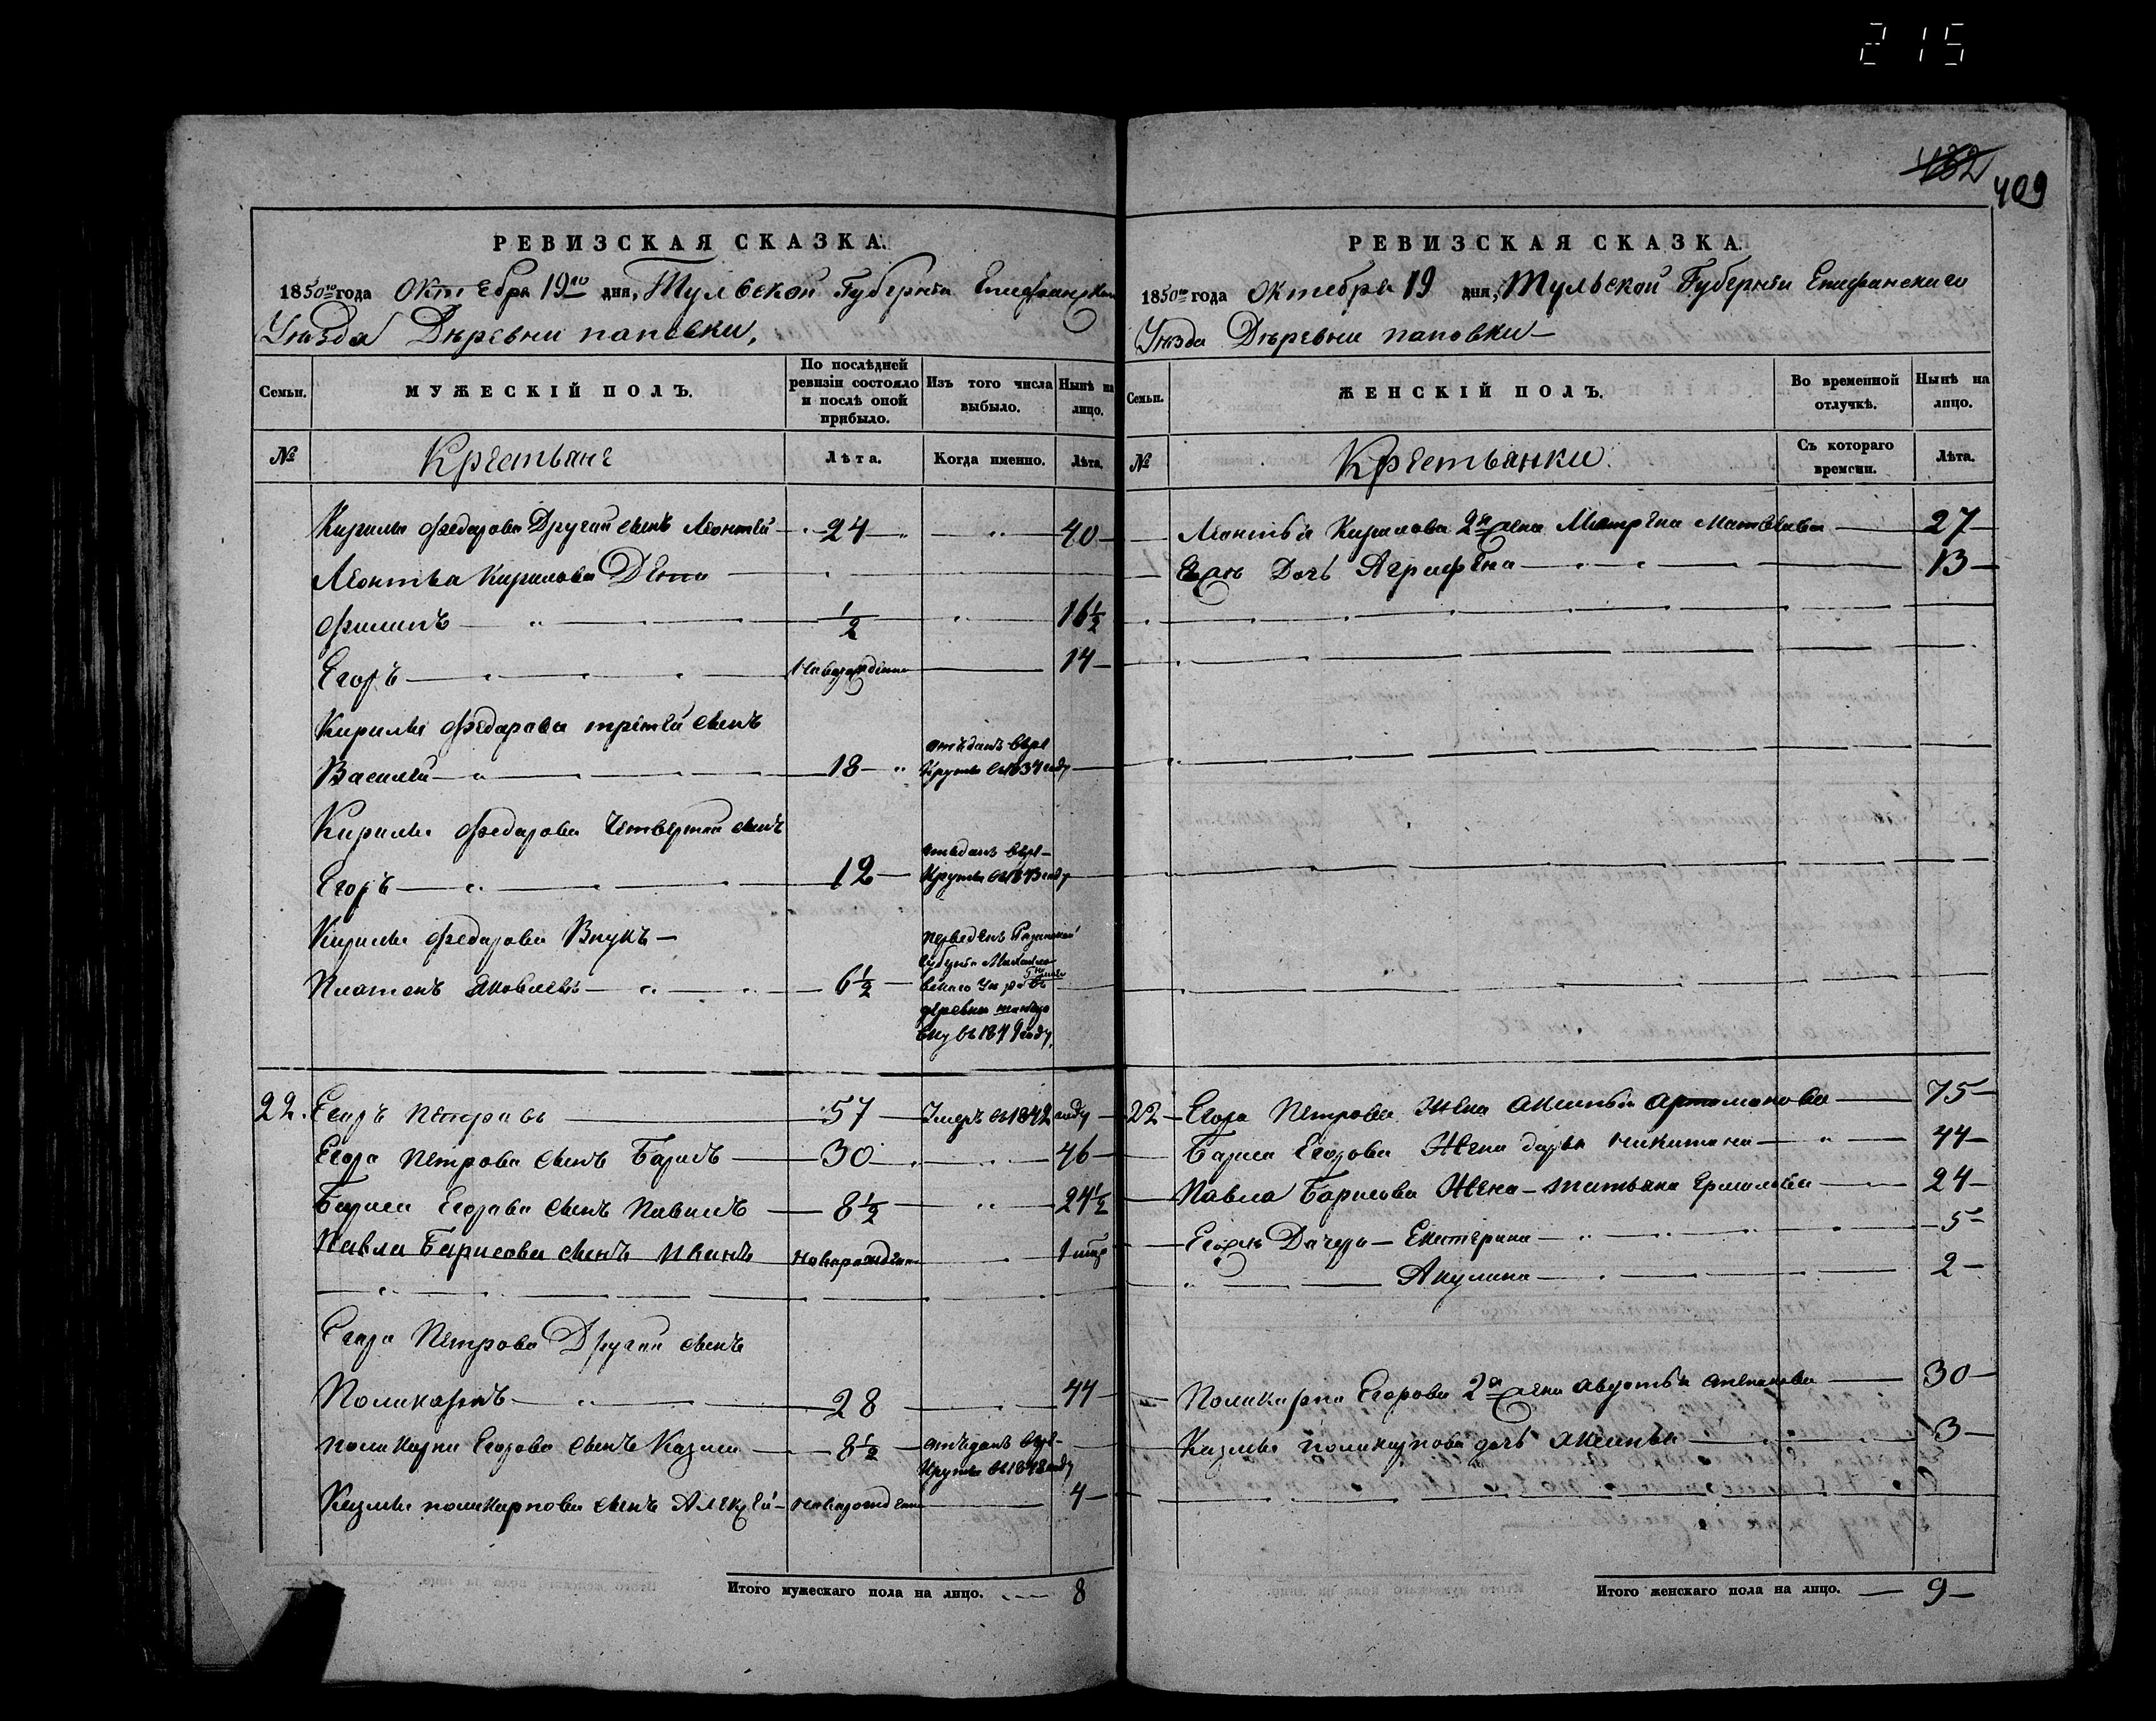 215
432
409
РЕВИЗСКАЯ СКАЗКА.
1850го года Октебра 19го дня, Тульской Губерніи Епифанскаго
Уѣзда Дѣревни паповки,
Семьи.
МУЖЕСКІЙ ПОЛЪ.
По послѣдней ревизіи состояло и послѣ оной прибыло.
Изъ того числа выбыло.
Нынѣ на лицо.
№
Крестьяне
Лѣта.
Когда именно.
Лѣта.
Кирилы Федарова Другой сынъ Леонтей 24 40
Леонтья Кирилова Дети
Филипъ 1/2 16 1/2
Егоръ Наворожденн 14
Кирилы Федарова третей сынъ
Василей 18 отъданъ врекруты въ1834году
Кирилы Федарова Четвертой сынъ
Егоръ 12 отъданъ врекруты въ1843году
Кирилы Федарова Внукъ
Платонъ Яковлевъ 6 1/2 переведенъ Рязанской Губерніи въ 1849году
22. Егоръ Петровъ 57 Умеръ въ1842 году
Егора Петрова сынъ Барисъ 30 46
Бариса Егорова сынъ Павилъ 8 1/2 24 1/2
Павла Барисова сынъ Иванъ новарожденн 1
Егора Петрова Другой сынъ
Поликарпъ 28 44
поликарпа Егорова сынъ Казма 8 1/2 отъданъ врекруты въ1848году
Казмы поликарпова сынъ Алексей наворожденн 4
Итого мужескаго пола на лицо. 8
РЕВИЗСКАЯ СКАЗКА.
1850го года Октебра 19 дня, Тульской Губерніи Епифанскаго
Уѣзда Дѣревни паповки
Семьи.
ЖЕНСКІЙ ПОЛЪ.
Во временной отлучкѣ.
Нынѣ на лицо.
№
Крестьянки.
Съ котораго времени.
Лѣта.
Леонтья Кирилова 2я жена Матрена Матвѣева 27
Его Дочь Аграфена 13
22 Егора Петрова Жена Аксинья Артамонова 75
Бариса Егорова Жена дарья никитина 44
Павла Барисова Жена татьяна Ермолаева 24
Его Дочери Екатерина 5
Акулина 2
Поликарпа Егорова 2я жена Авдотья степанова 30
Казмы поликарпова дочь Аксинья 3
Итого женскаго пола на лицо. 9